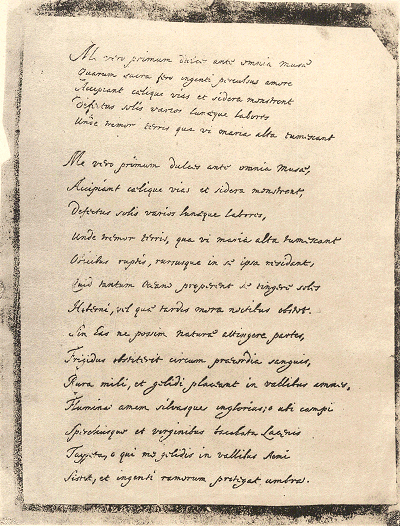 Me vero primum dulces ante omnia musæ
Quarum sacra fero ingenti perculsus amore
Accipiant cælique vias et sidera monstrent
Defectus solis varios lunæque labores
Unde tremor terris qua vi maria alta tumescant
Me vero primum dulces ante omnia Musæ,
Accipiant cælique vias et sidera monstrent,
Defectus solis varios lunæque labores,
Unde tremor terris, qua vi maria alta tumescant
Obicibus ruptis, rursusque in se ipsa residant,
Quid tantum Oceano properent se tingere soles
Hiberni, vel quæ tardis mora noctibus obstet.
Sin has ne possim naturæ attingere partes,
Frigidus obstiterit circum præcordia sanguis,
Rura mihi, et gelidi placeant in vallibus amnes,
Flumina amem silvasque inglorius; o ubi campi
Spercheusque et virginibus bacchata Lacænis
Taygeta, o qui me gelidis in vallibus Hemi
Sistet, et ingenti ramorum protegat umbra.